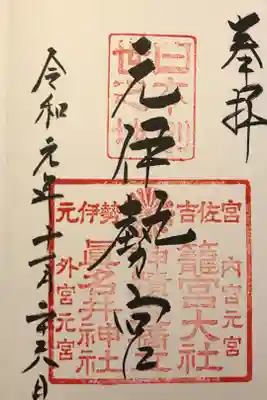 奉拝
元伊勢宮
令和元年十一月
元伊勢
吉佐宮
内宮元宮
籠宮大社
眞名井神社
外宮元宮